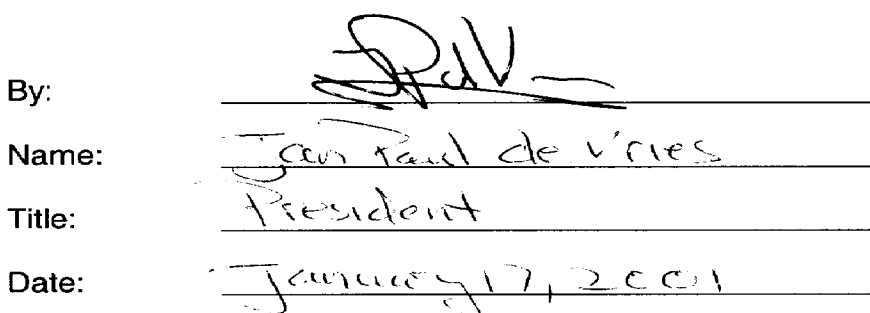 By:
Name: Jan Paul de Vries
Title: President
Date: January 17, 2001